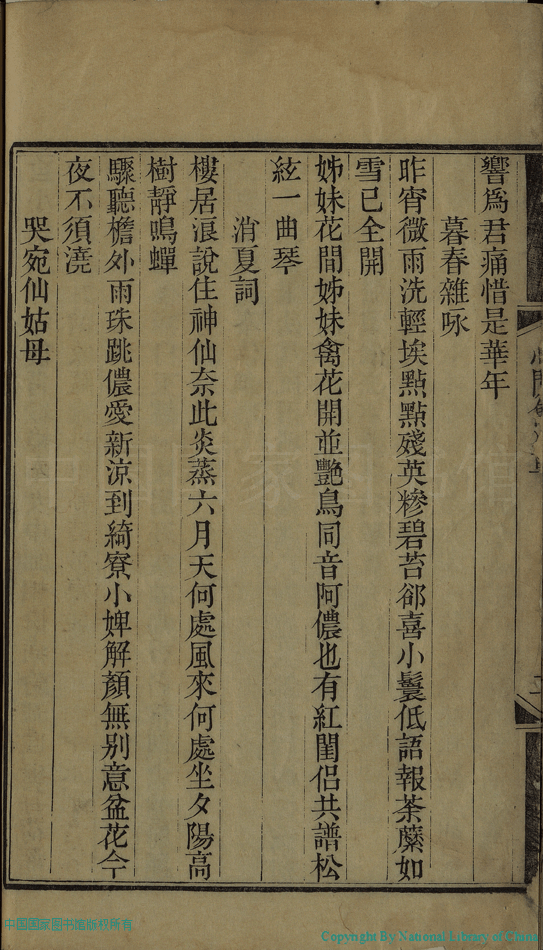 響為君痛惜是華年
暮春雜咏
昨宵微雨洗輕埃點點殘英糝碧苔郤喜小鬟低語報荼蘼如
雪已全開
姊妹花間姊妹禽花開並艷鳥同音阿儂也有紅閨侶共譜松
絃一曲琴
消夏詞
樓居浪說住神仙奈此炎蒸六月天何處風來何處坐夕陽高
樹靜鳴蟬
驟聽檐外雨珠跳儂愛新涼到綺寮小婢解顏無别意盆花今
夜不須澆
哭宛仙姑母
中国国家图书馆版权所有
Copyright By National Library of China